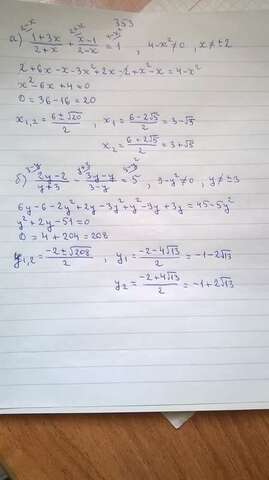 353
а) (1+3x)/(2+x) + (x-1)/(2-x) = 1, 4-x²≠0, x≠±2
2+6x-x-3x²+2x-2+x²-x=4-x²
x²-6x+4=0
D=36-16=20
x₁,₂ = (6±√20)/2, x₁ = (6-2√5)/2 = 3-√5
x₂ = (6+2√5)/2 = 3+√5
б) (2y-2)/(y+3) - (3y-y)/(3-y) = 5, 9-y²≠0, y≠±3
6y-6-2y²+2y-3y²+y²-9y+3y=45-5y²
y²+2y-51=0
D=4+204=208
y₁,₂ = (-2±√208)/2, y₁ = (-2-4√13)/2 = -1-2√13
y₂ = (-2+4√13)/2 = -1+2√13